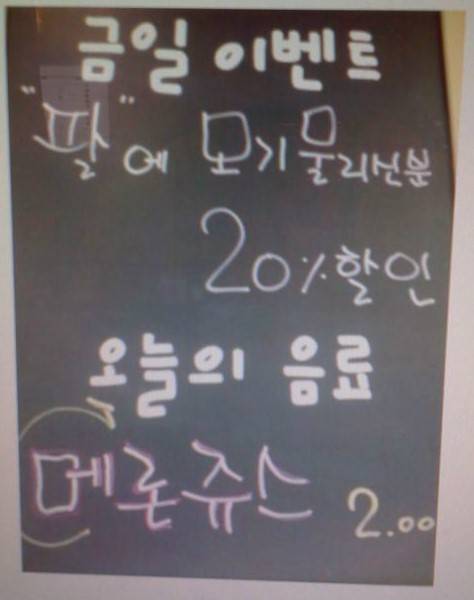 금일 이벤트
"팔"에 모기 물리신분
20% 할인
오늘의 음료
메론쥬스 2.00